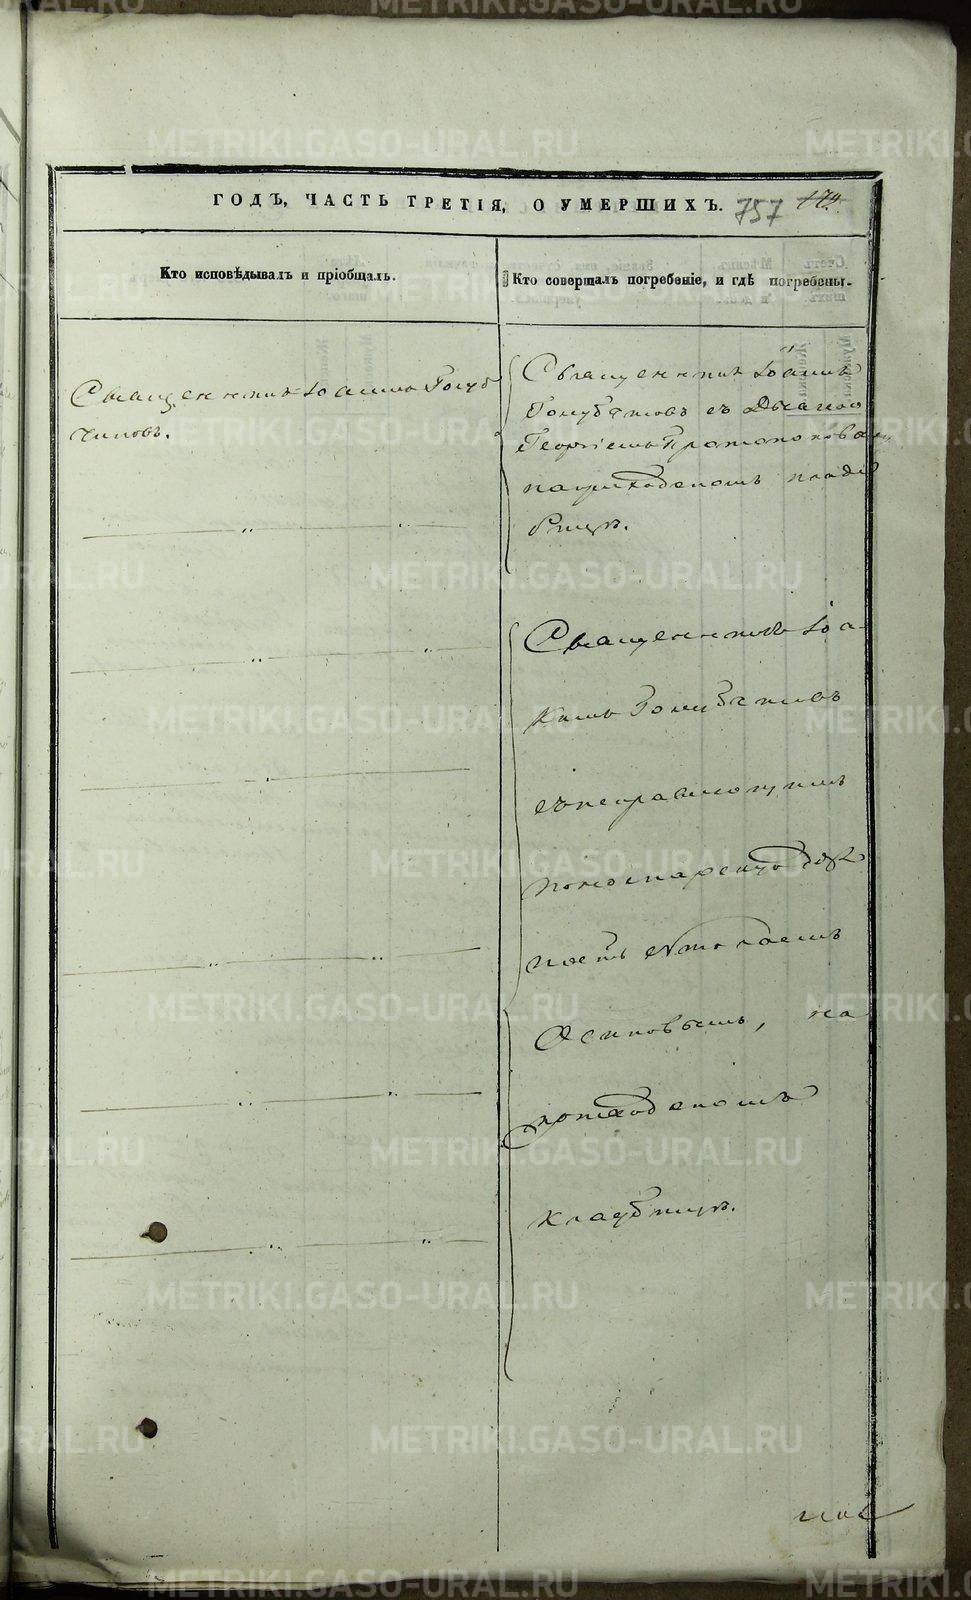 METRIKI.GASO-URAL.RU
ГОДЪ, ЧАСТЬ ТРЕТІЯ, О УМЕРШИХЪ. 757 174.
Кто исповѣдывалъ и пріобщалъ.
Кто совершалъ погребеніе, и гдѣ погребены.
Священникъ Іоаннъ Голуб
чиковъ.
Священникъ Іоаннъ
Голубчиковъ съ Дьячкомъ
Георгіемъ Протопоповымъ
на приходскомъ клад
бищѣ.
Священникъ Іоа
ннъ Голубчиковъ
съ исправляющимъ
пономарскую долж
ность
Осиповымъ, на
приходскомъ
кладбищѣ.